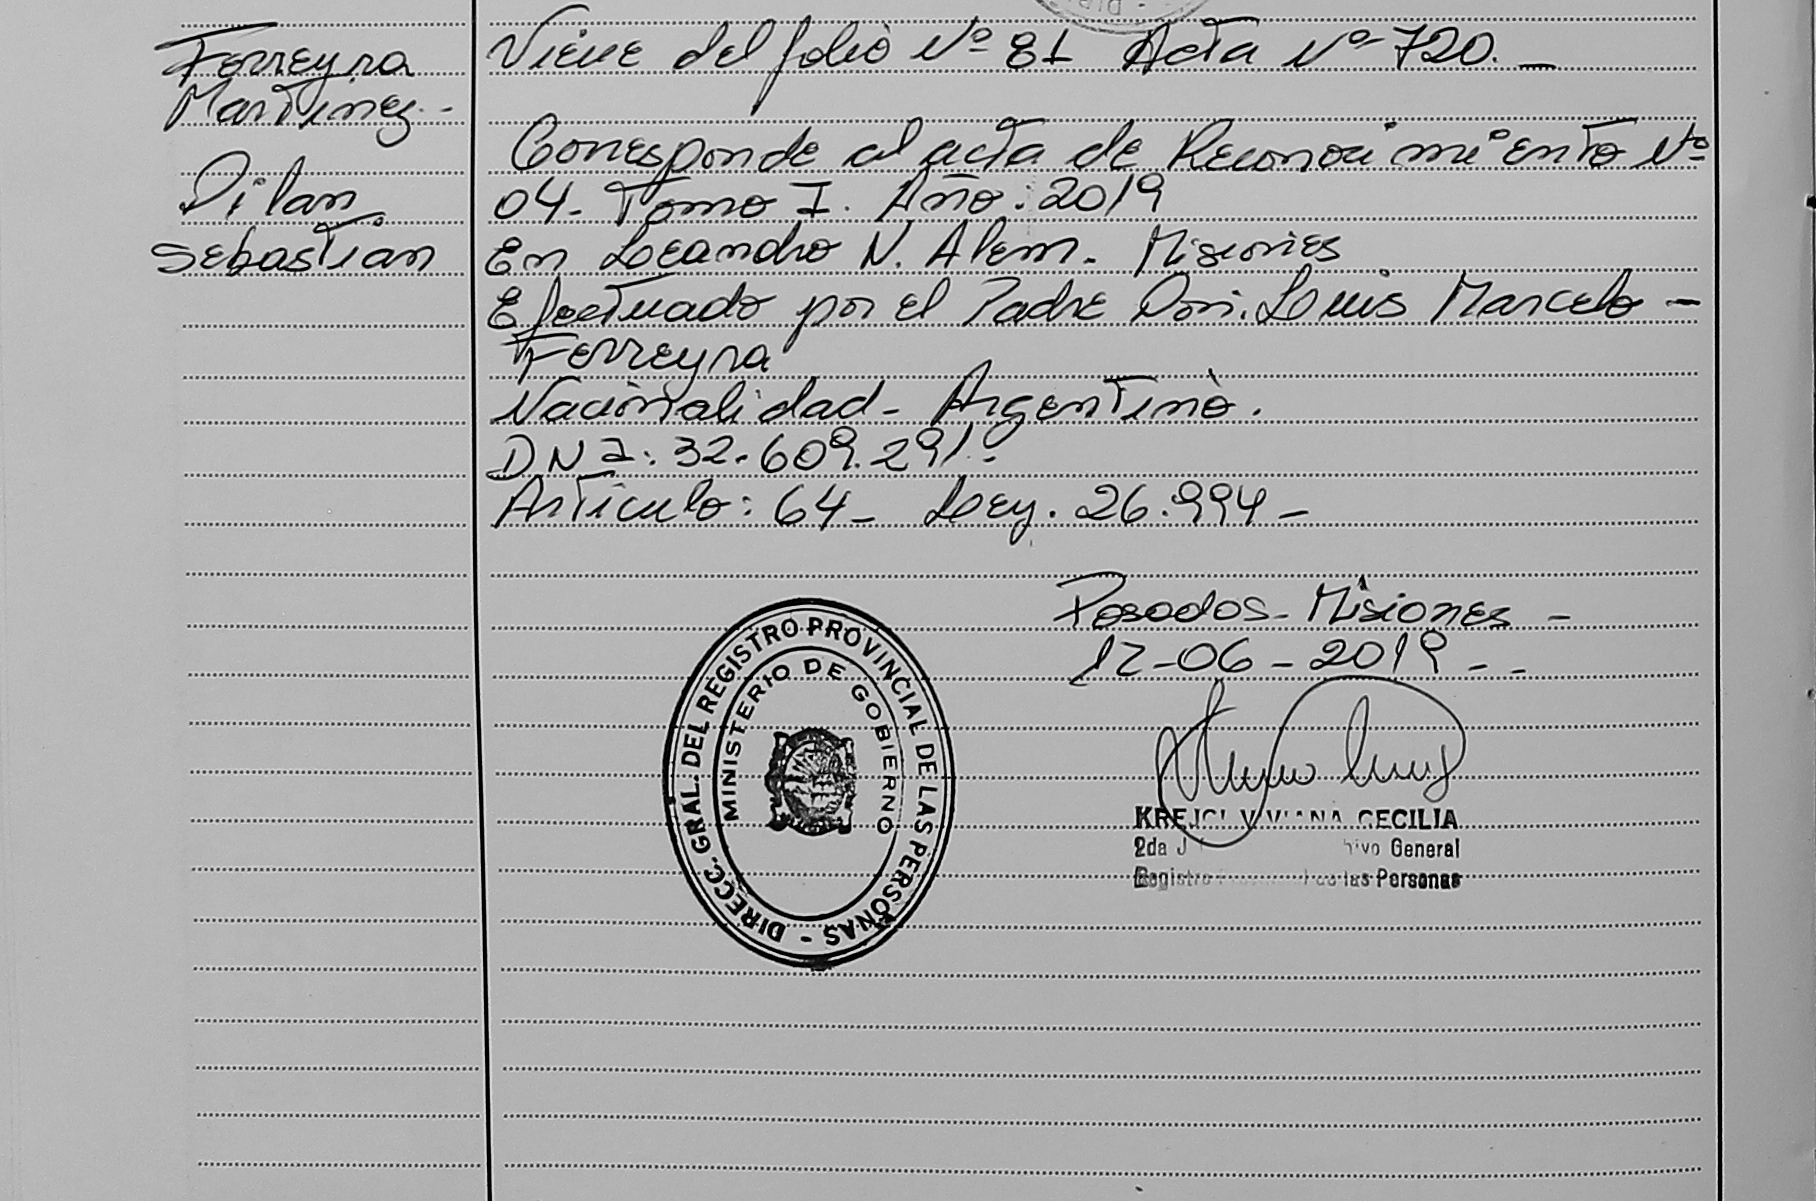 Ferreyra
Martinez.-
Dilan
Sebastian
Viene del folio Nº 81 Acta Nº 720.-
Corresponde al acta de Reconocimiento Nº
04- Tomo I. Año: 2019
En Leandro N. Alem- Misiones
Efectuado por el Padre Don: Luis Marcelo -
Ferreyra
Nacionalidad- Argentino.
DNI: 32.609.291.
Articulo: 64- Ley. 26.994-
Posadas- Misiones -
12-06-2019 - -
DIRECC. GRAL. DEL REGISTRO PROVINCIAL DE LAS PERSONAS -
MINISTERIO DE GOBIERNO
KREJCI VIVIANA CECILIA
2da J General
Registro de las Personas